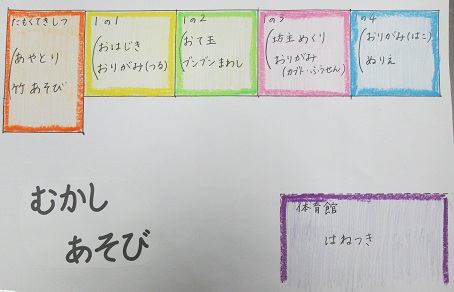 たもくてきしつ
あやとり
竹あそび
1の1
おはじき
おりがみ(つる)
1の2
おて玉
ブンブンまわし
1の3
坊主めくり
おりがみ
(カブト・ふうせん)
1の4
おりがみ(はこ)
ぬりえ
むかし
あそび
体育館
はねつき